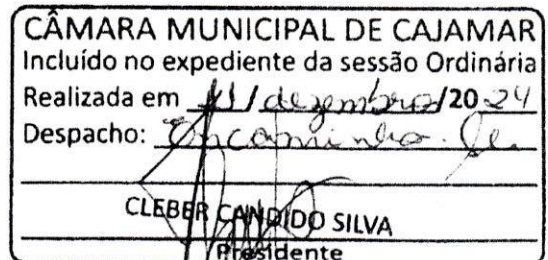 CÂMARA MUNICIPAL DE CAJAMAR
Incluído no expediente da sessão Ordinária
Realizada em 11/dezembro/2024
Despacho: Encaminha-se
CLEBER CANDIDO SILVA
Presidente